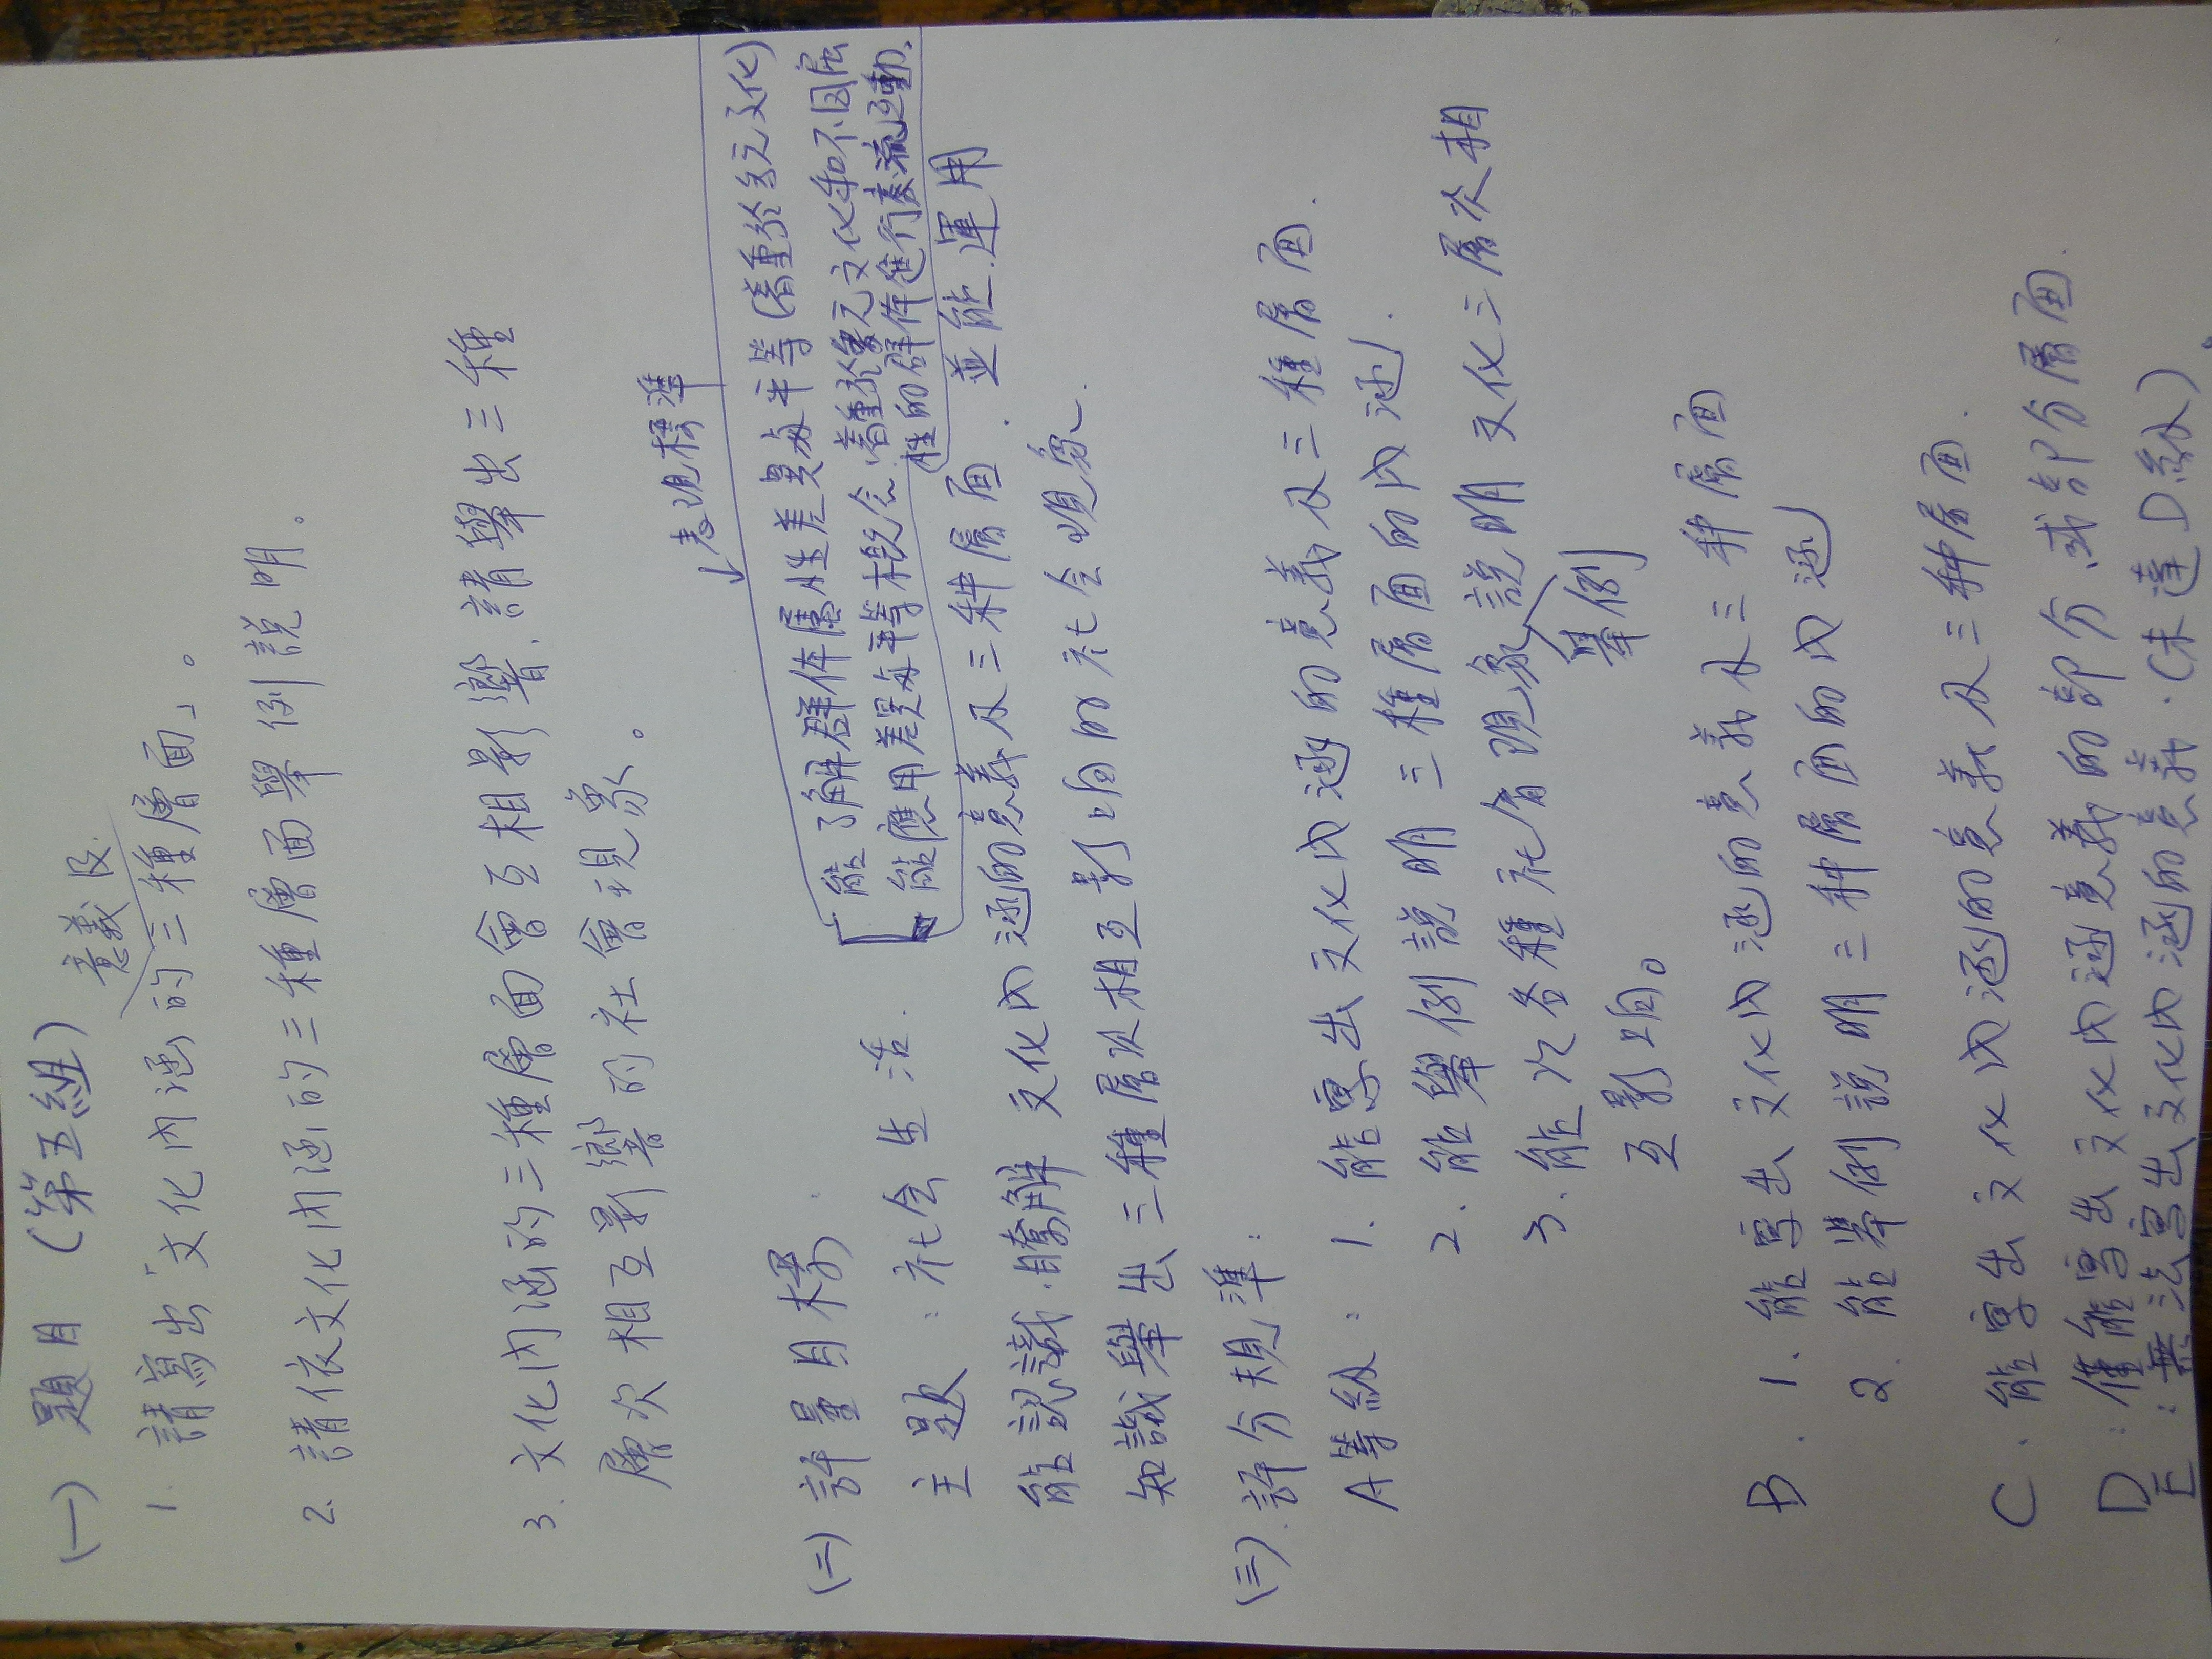 (一) 題目 (第五組)
意義及
1. 請寫出「文化內涵的三種層面」。
2. 請依文化內涵的三種層面舉例說明。
3. 文化內涵的三種層面會互相影響,請舉出三種
層次相互影響的社會現象。
↓表現標準
(二) 評量目標:
能了解群体屬性差異與平等(着重於多元文化)
能應用差異與平等概念,着重於多元文化和不同屬
性的群体進行交流互動。
主題:社会生活.
能認識.瞭解 文化內涵的意義及三种層面.並能.運用
知識舉出三種層次相互影响的社会現象.
(三).評分規準:
A等級: 1. 能寫出文化內涵的意義及三種層面.
2. 能舉例說明三種層面的內涵.
3. 能從各種社會現象說明文化三層次相
舉例
互影响。
B. 1. 能寫出文化內涵的意義及三种層面
2. 能舉例說明三种層面的內涵
C. 能寫出文化內涵的意義及三种層面.
D:僅能寫出文化內涵意義的部分或部分層面.
E:無法寫出文化內涵的意義.(未達D級)。